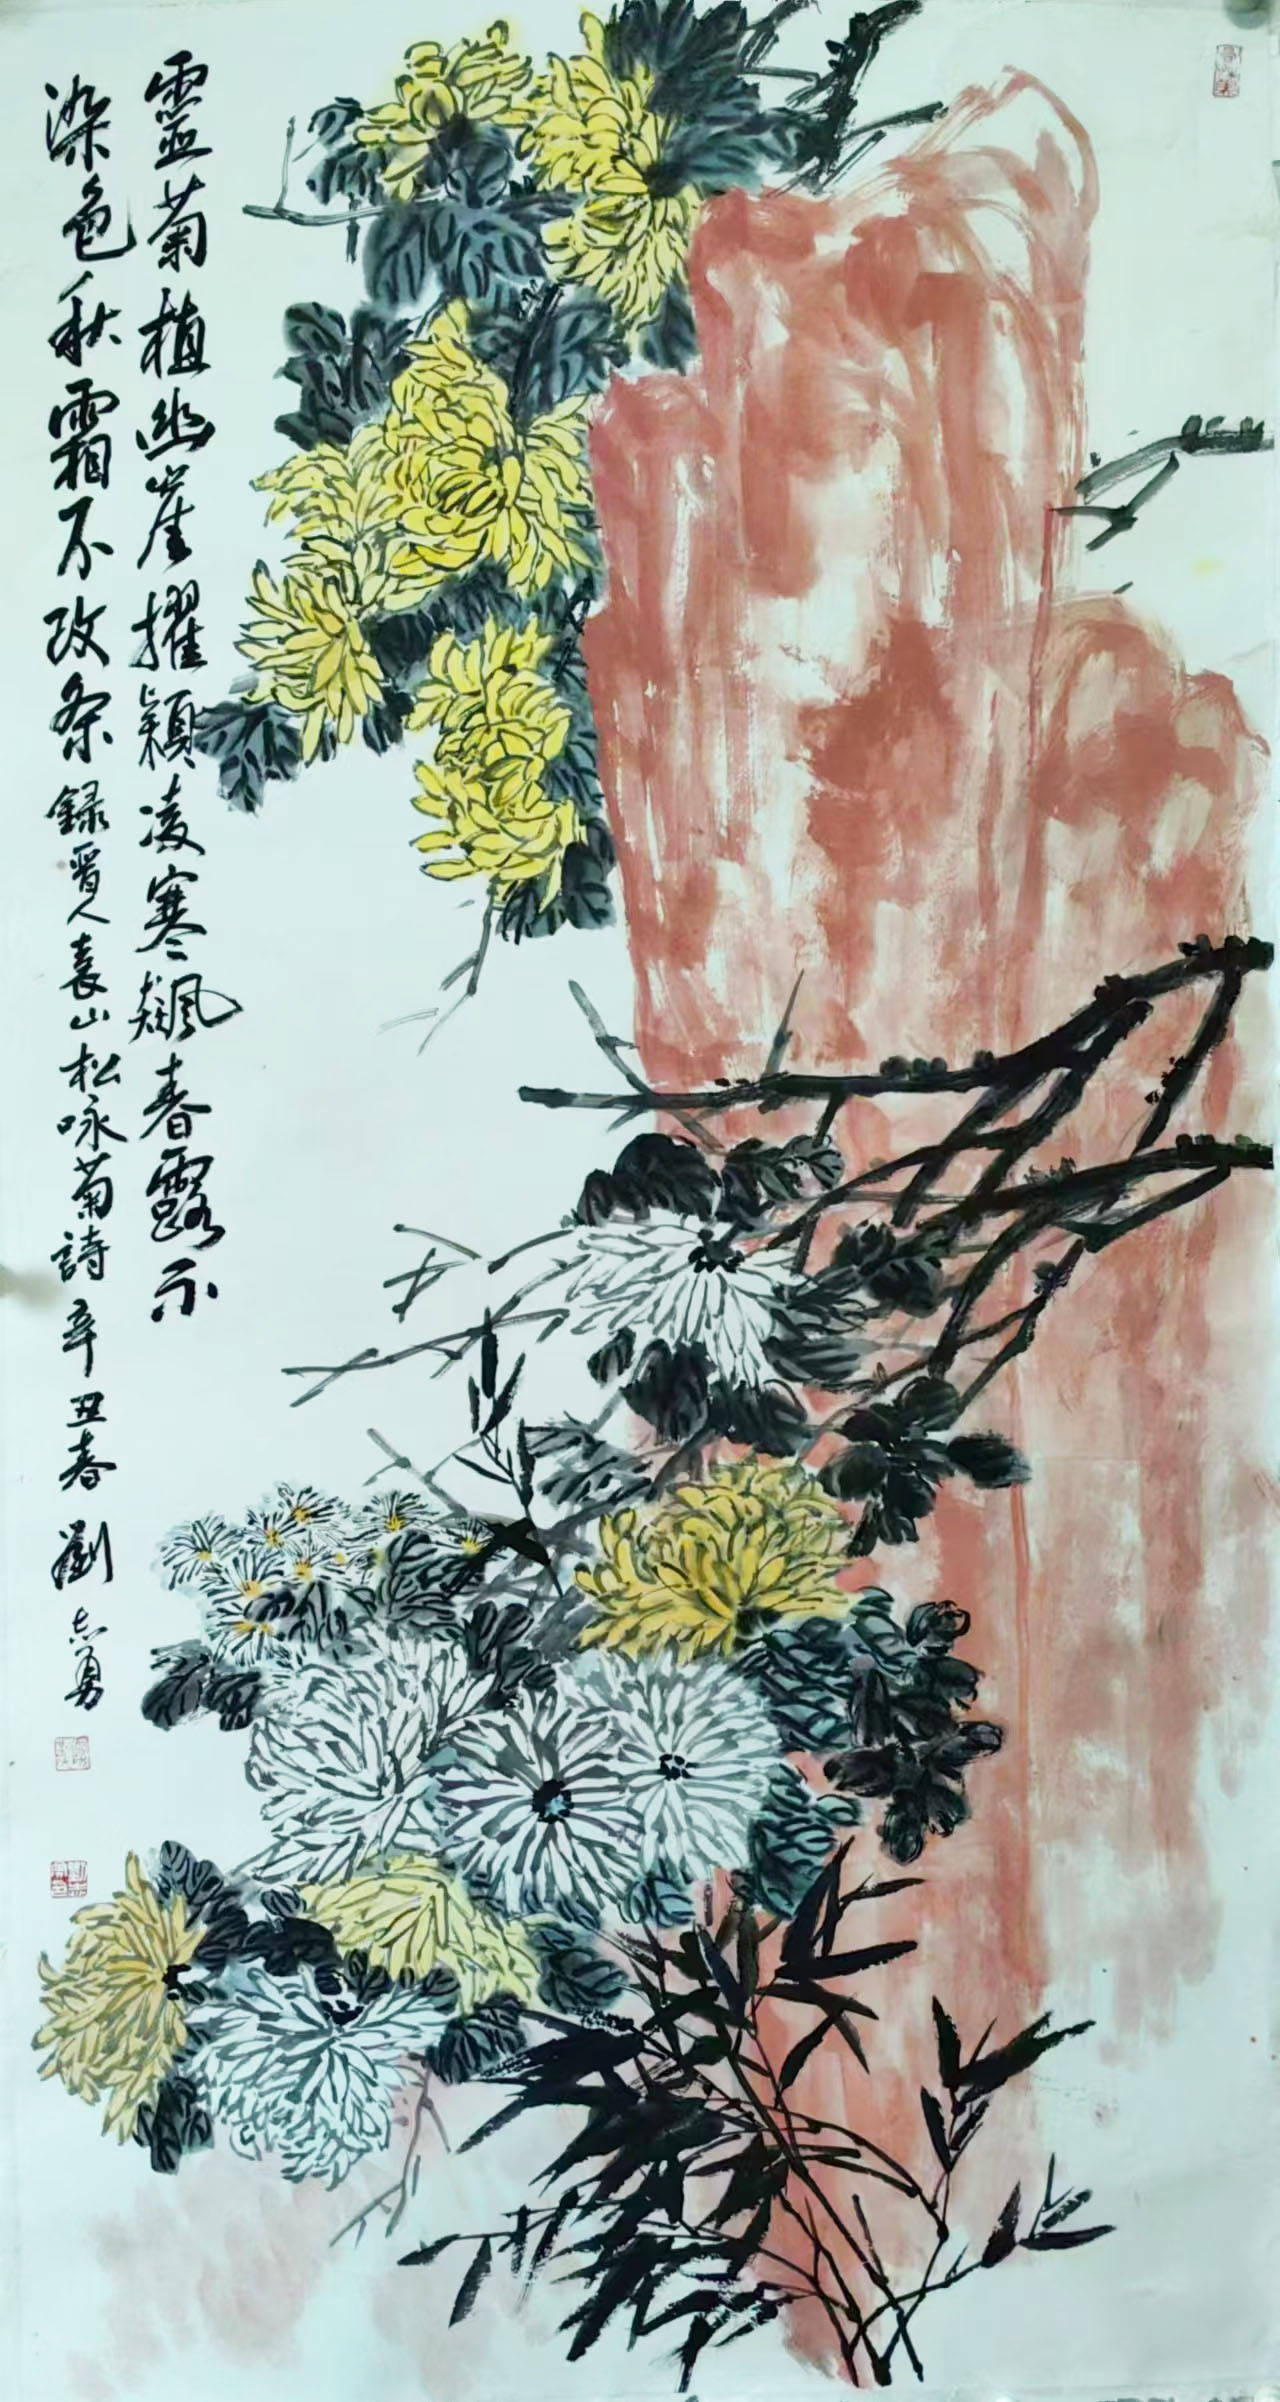 靈菊植幽崖擢穎凌寒飈春露不
染色秋霜不改条錄晋人袁山松咏菊詩辛丑春劉志勇